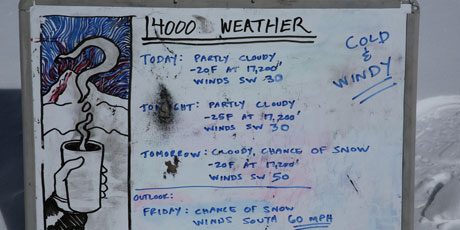 14000 WEATHER
COLD
&
WINDY
TODAY: PARTLY CLOUDY
-20F AT 17,200'
WINDS SW 30
TONIGHT: PARTLY CLOUDY
-25F AT 17,200'
WINDS SW 30
TOMORROW: CLOUDY, CHANCE OF SNOW
-20F AT 17,200'
WINDS SW 50
OUTLOOK:
FRIDAY: CHANCE OF SNOW
WINDS SOUTH 60 MPH